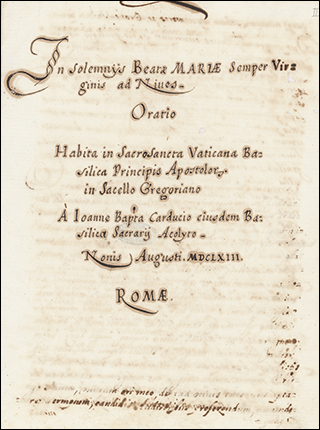 In solemnijs Beatæ MARIÆ Semper Vir=
ginis ad Niues.
Oratio
Habita in SacroSancta Vaticana Ba=
silica Principis Apostolor.
in Sacello Gregoriano
À Ioanne Bapta Carducio eiusdem Ba=
silicæ Sacrarij Acolyto.
Nonis Augusti. MDCLXIII.
ROMÆ.